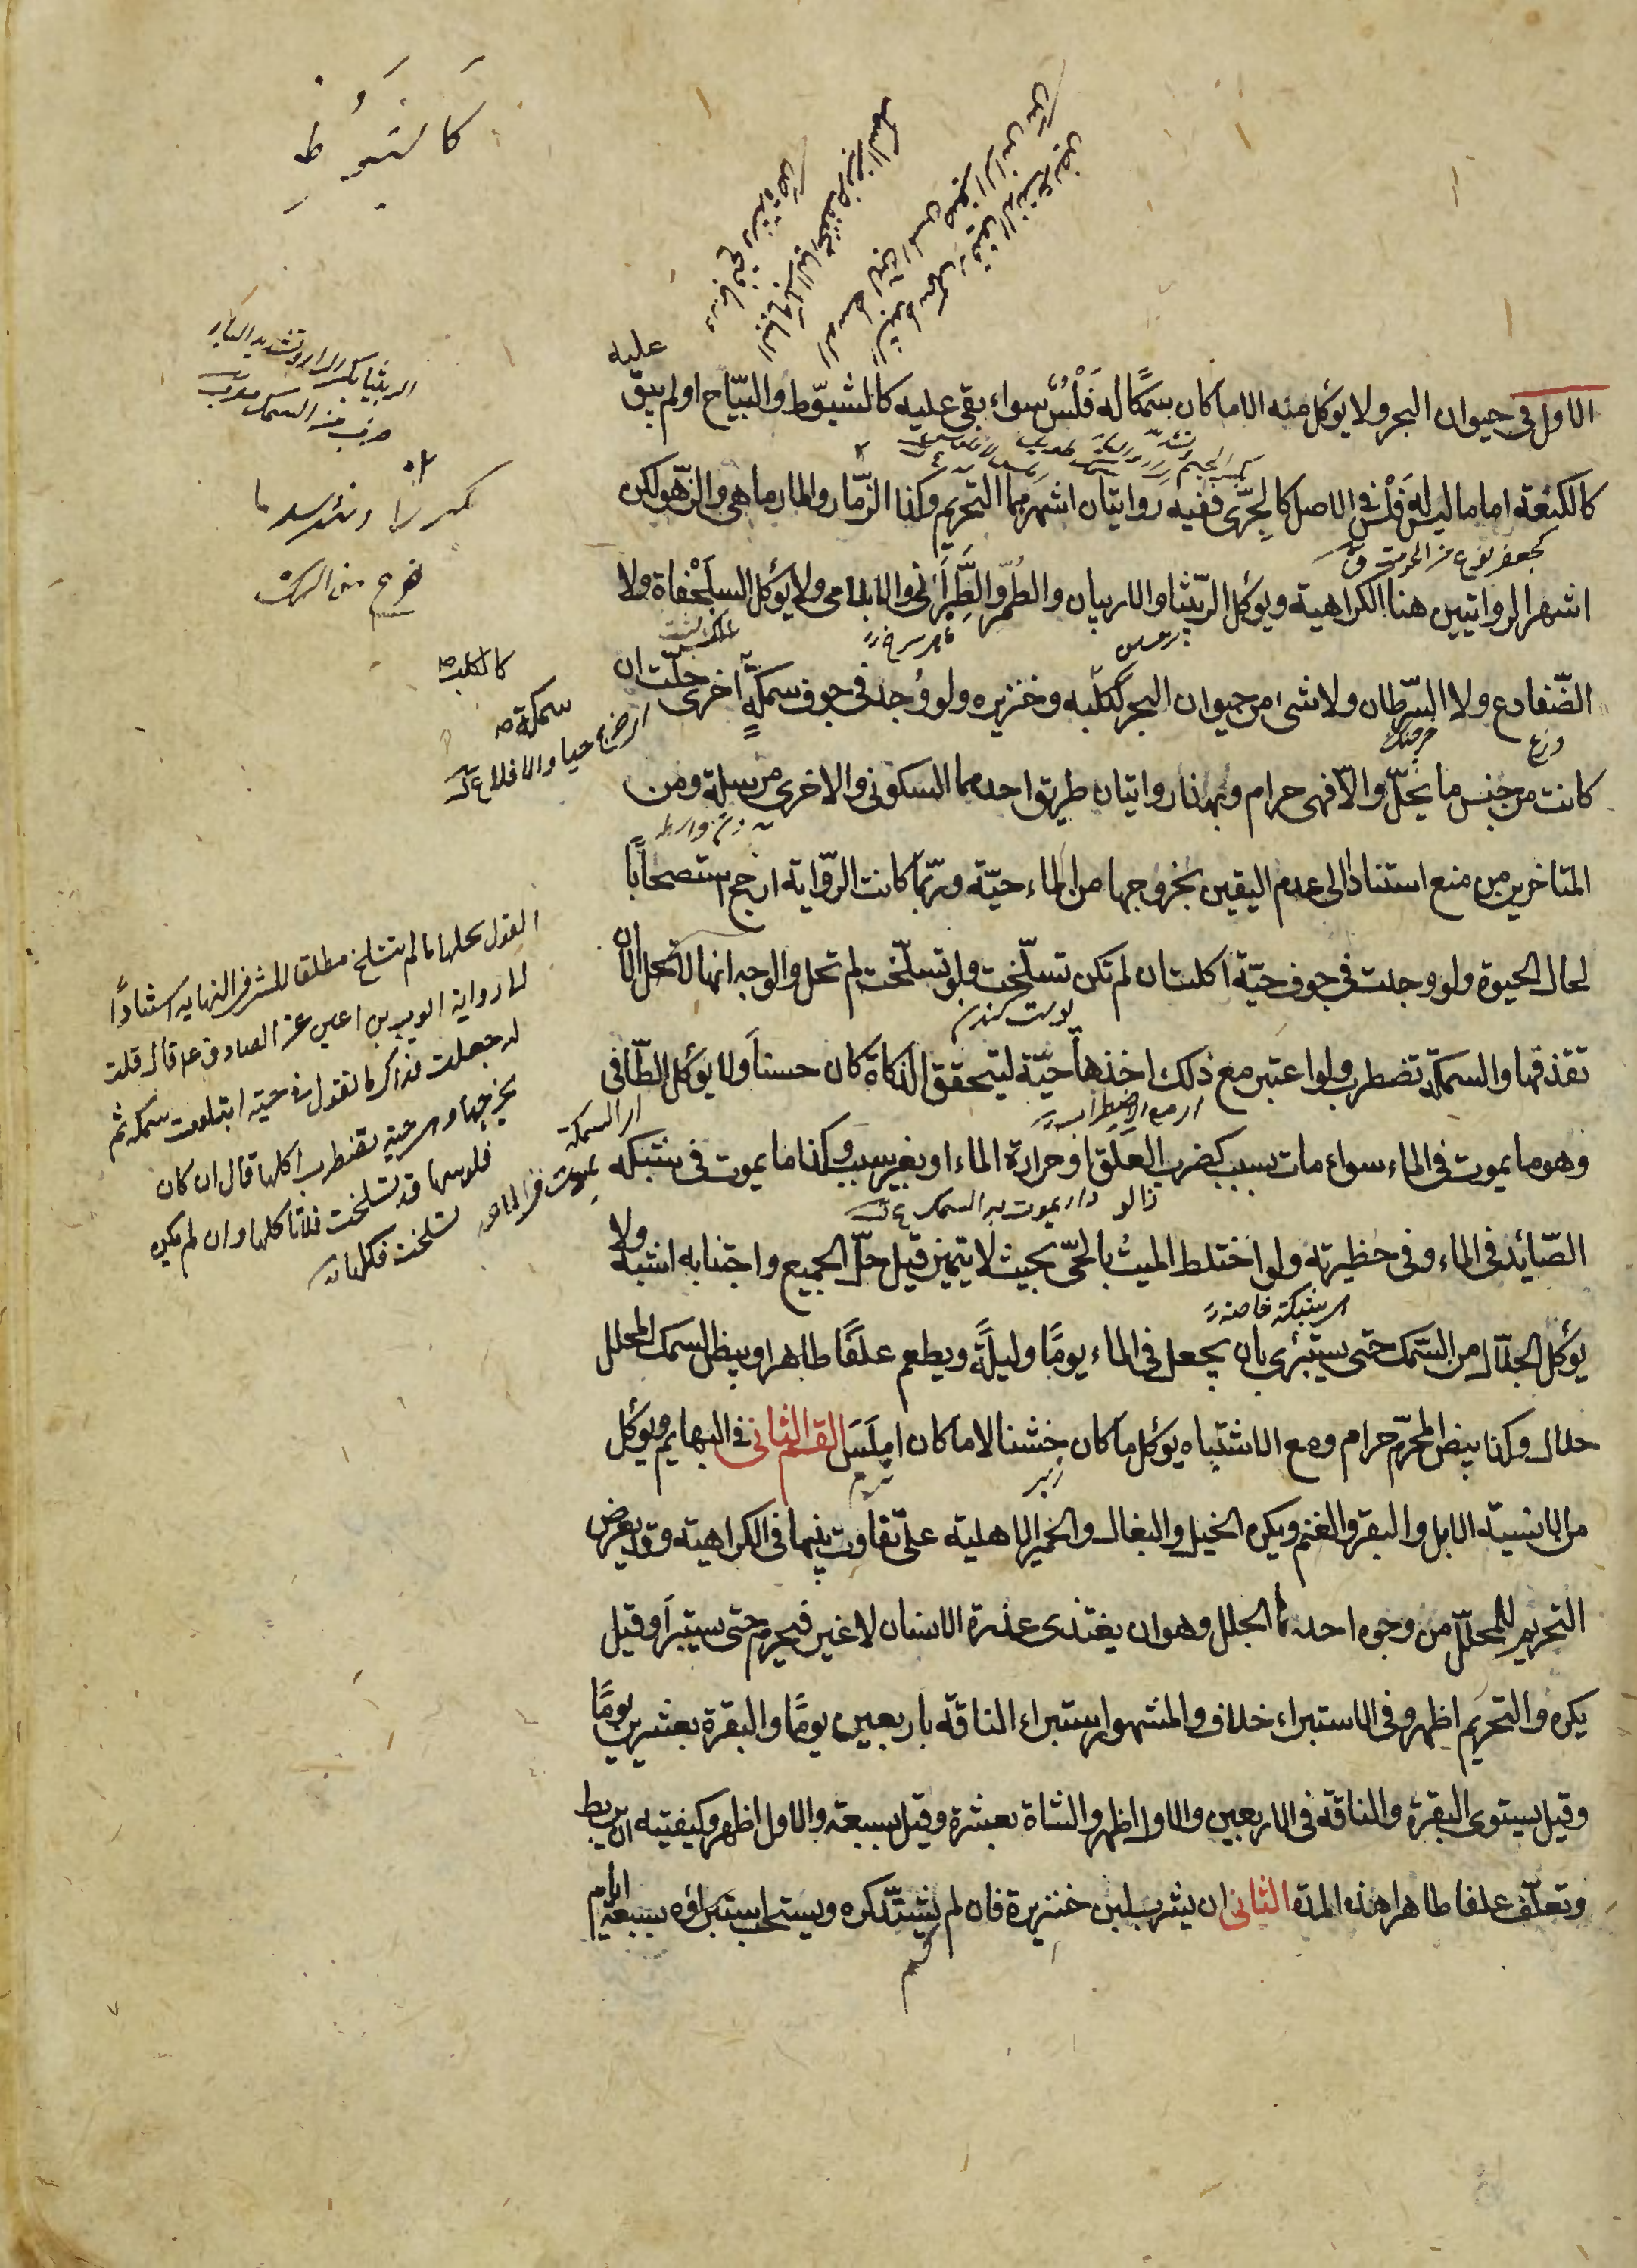 الاول فى حيوان البحر ولا يوكل منه الا ما كان سمكًا له فَلْسٌ سواء بقى عليه كالشبوّط والبيّاح او لم يبق عليه
كالكنعة اما ما ليس له فَلْسٌ فى الاصل كالجِرّى ففيه روايتان اشهرهما التحريم وكذا الزمّار والمارماهى والزّهو لكن
اشهر الروايتين هنا الكراهية ويوكل الربّيثا والاربيان والطُمّر والطَّبَرانى والابلامى ولا يوكل السلَحْفاة ولا
الضّفادع ولا السّرطان ولا شئ من حيوان البحر ككلبه وخنزيره ولو وُجد فى جوف سمكةٍ اخرى حلّت ان
كانت من جنس ما يحلّ والّا فهى حرام وبهذا روايتان طريق احدهما السكونى والاخرى مرسلة ومن
المتاخرين من منع استنادا الى عدم اليقين بخروجها من الماء حيّة وربّما كانت الرّواية ارجح استصحابًا
لحال الحيوة ولو وجدت فى جوف حيّة اكلت ان لم تكن تسلّخت ولو تسلّخت لم تحل والوجه انها لا تحل الا ان
تقذفها والسمكة تضطرب ولو اعتبر مع ذلك اخذها حيّة ليتحقق الذكاة كان حسنا ولا يوكل الطّافى
وهو ما يموت فى الماء سواء مات بسبب كضرب العلَق او حرارة الماء او بغير سبب وكذا ما يموت فى شبكه
الصّائد فى الماء وفى حظيرته ولو اختلط الميت بالحىّ بحيث لا يتميز قيل حلّ الجميع واجتنابه اشبه ولا
يؤكل الجلّال من السّمك حتى يستبرى بان يجعل فى الماء يومًا وليلةً ويطعم علفًا طاهرا وبيض السمك المحلل
حلال وكذا بيض المحرّم حرام ومع الاشتباه يوكل ما كان خشنا لا ما كان املَسَ القسم الثانى فى البهايم ويوكل
من الانسية الابل والبقر والغنم ويكره الخيل والبغال والحمير الاهلية على تفاوت بينهما فى الكراهية وقد يعرض
التحريم للمحلّل من وجوه احدها الجلل وهو ان يغتذى عذرة الانسان لا غير فيحرم حتى يستبرأ وقيل
يكره والتحريم اظهر وفى الاستبراء خلاف والمشهور استبراء الناقة باربعين يومًا والبقرة بعشرين يومًا
وقيل يستوى البقرة والناقة فى الاربعين والاول اظهر والشاة بعشرة وقيل بسبعة والاول اظهر وكيفيته ان يربط
وتعلّف علفا طاهرا هذه المدة الثانى ان يشرب لبن خنزيرة فان لم يشتدّ كره ويستحب استبراؤه بسبعة ايام
الربيثا بكسر الراء وتشديد الباء
ضرب من السمك
كالكلب
ان خرج حيا والا فلا
بكسر الجيم
پوست كندن
اى مع الاضطراب
زالو
اى السمكة
يموت فى الماء
اى شبكة خاصة
زبر
نرم
القول بحلها ما لم تنسلخ مطلقا للشيخ فى النهاية استنادًا
الى رواية ايوب بن اعين عن الصادق ع قال قلت
له جعلت فداك ما تقول فى حية ابتلعت سمكة ثم
يخرجها وهى حية تضطرب اكلها قال ان كان
فلوسها قد تسلخت فلا تاكلها وان لم يكن
تسلخت فكلها